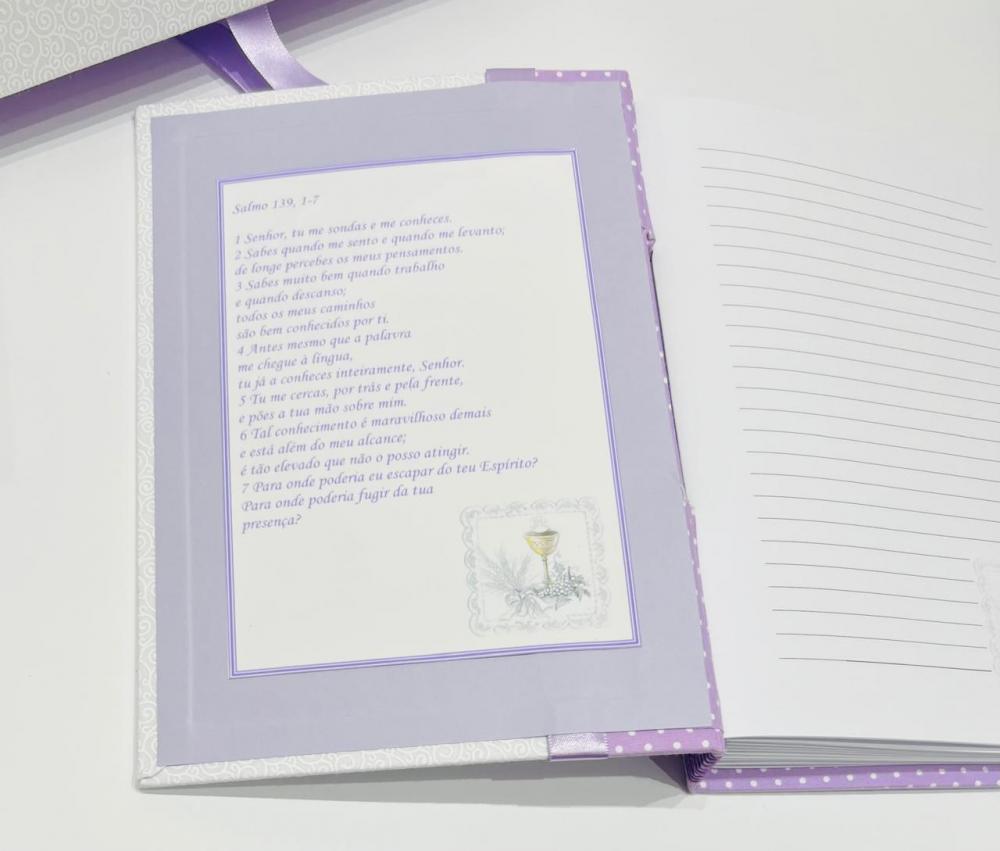 Salmo 139, 1-7
1 Senhor, tu me sondas e me conheces.
2 Sabes quando me sento e quando me levanto;
de longe percebes os meus pensamentos.
3 Sabes muito bem quando trabalho
e quando descanso;
todos os meus caminhos
são bem conhecidos por ti.
4 Antes mesmo que a palavra
me chegue à língua,
tu já a conheces inteiramente, Senhor.
5 Tu me cercas, por trás e pela frente,
e pões a tua mão sobre mim.
6 Tal conhecimento é maravilhoso demais
e está além do meu alcance;
é tão elevado que não o posso atingir.
7 Para onde poderia eu escapar do teu Espírito?
Para onde poderia fugir da tua
presença?